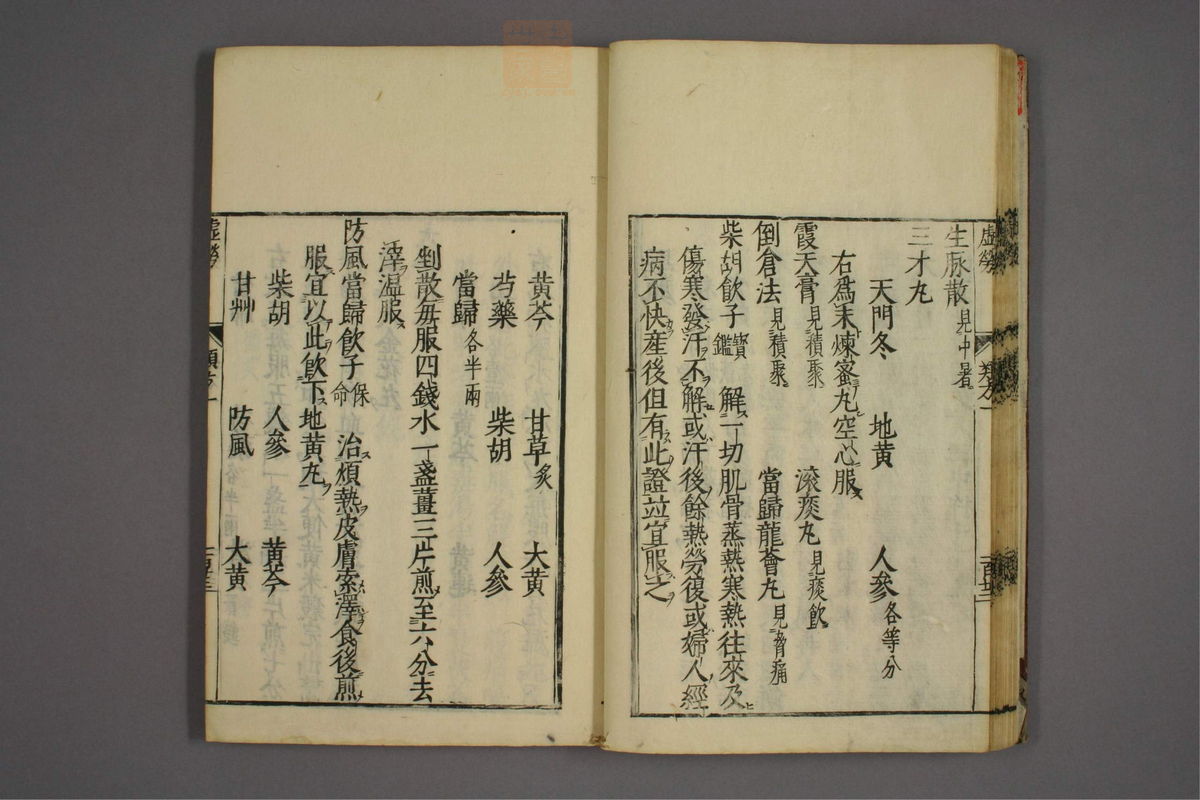 虛勞
生脉散見中暑
三才丸
天門冬 地黄 人參各等分
右為末煉蜜丸空心服
霞天膏見積聚 滚痰丸見痰飲
倒倉法見積聚 當歸龍薈丸見脅痛
柴胡飲子寶鑑 解一切肌骨蒸熱寒熱往來及
傷寒發汗不解或汗後餘熱勞復或婦人經
病不快産後但有此證竝宜服之
黄芩 甘草炙 大黄
芍藥 柴胡 人參
當歸各半兩
剉散每服四錢水一盞薑三片煎至六分去
滓温服
防風當歸飲子保命 治煩熱皮膚索澤食後煎
服宜以此飲下地黄丸
柴胡 人參 黄芩
甘艸 防風 大黄
虛勞